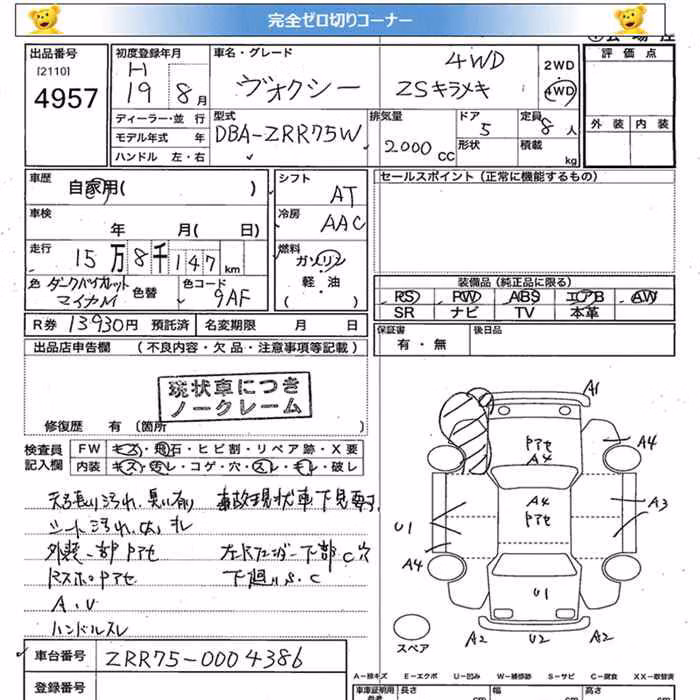 完全ゼロ切りコーナー
出品番号
[2110]
4957
初度登録年月
H
19 8月
車名・グレード
ヴォクシー
4WD
ZSキラメキ
2WD
4WD
評価点
外装 内装
ディーラー・並行
モデル年式 年
ハンドル 左・右
型式
DBA-ZRR75W
排気量
2000 CC
ドア
5
形状
定員
8人
積載
kg
車歴
自家用( )
車検
年 月( 日)
走行
15万8千147km
色 ダークバイオレット
マイカM
色替
色コード
9AF
シフト
AT
冷房
AAC
燃料
ガソリン
軽・油
( )
セールスポイント(正常に機能するもの)
装備品(純正品に限る)
PS PW ABS エアB AW
SR ナビ TV 本革
R券 13930円 預託済 名変期限 月 日
保証書
有・無
後日品
出品店申告欄 (不良内容・欠品・注意事項等記載)
現状車につき
ノークレーム
修復歴 有 〔箇所
検査員
記入欄
FW キズ・飛石・ヒビ割・リペア跡・X要
内装 キズ・汚レ・コゲ・穴・スレ・キレ・破レ
天張り汚れ、臭い有り
事故現状車下見要す
シート汚れ、
外装一部Pアセ
左Fフェンダー下部C穴
ドアスホPアセ
下廻りS.C
A.U
ハンドルスレ
A1
Pアセ
A4
A4
A4
Pアセ
A3
U1
A4
U1
スペア
A2
U2
A2
車台番号 ZRR75-0004386
登録番号
A-線キズ E-エクボ U-凹み W-補修跡 S-サビ C-腐食 XX-取替済
車庫証明用
参考
長さ
cm
幅
cm
高さ
cm